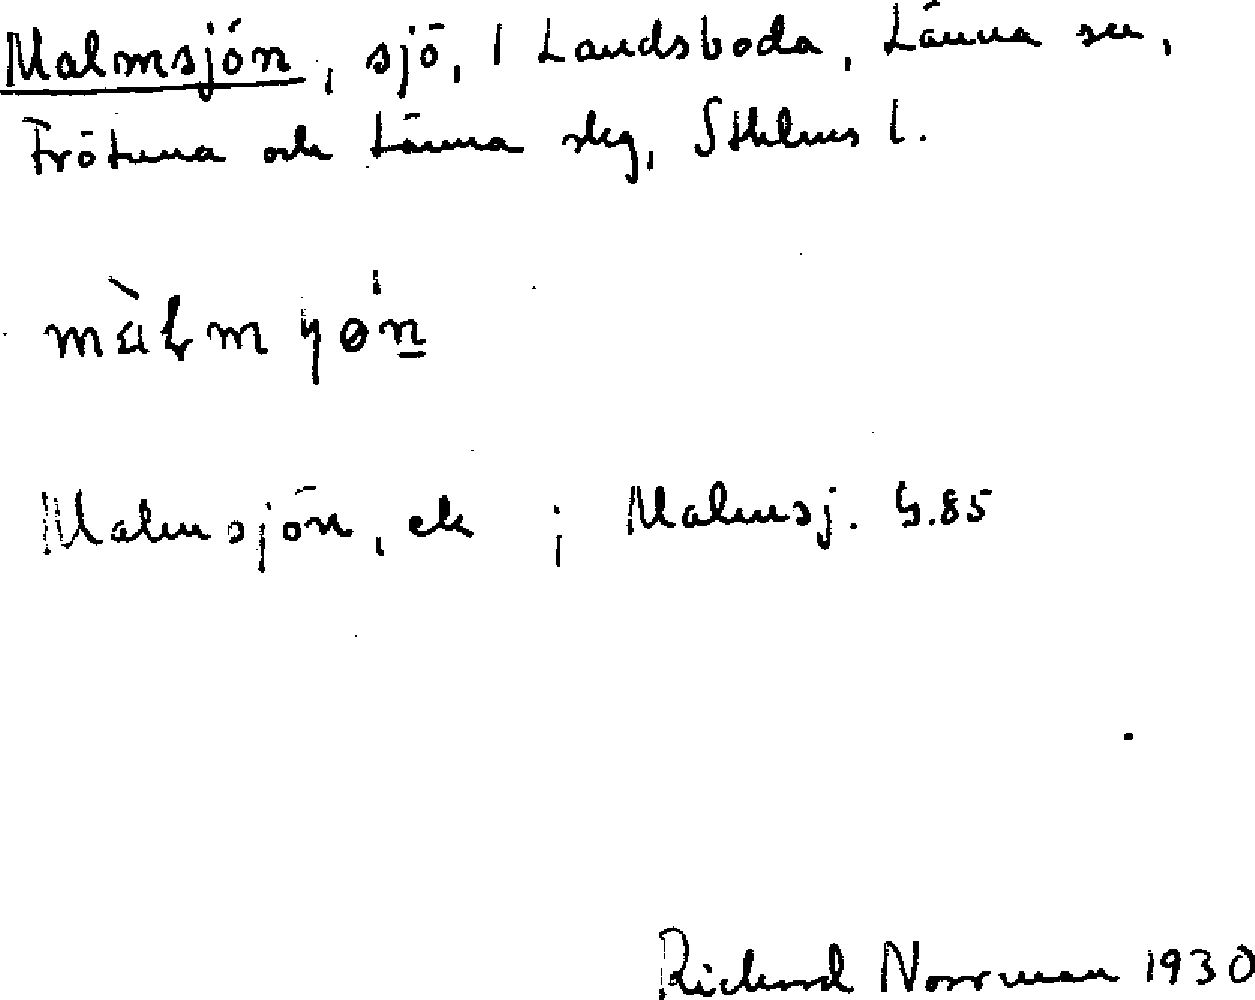 Malmsjön, sjö, 1 Landsboda, Länna sn,
Frötuna och Länna skg, Sthlms l.
màLm ɧø´n
Malmsjön, ek ; Malmsj. G.85
Richard Norrman 1930